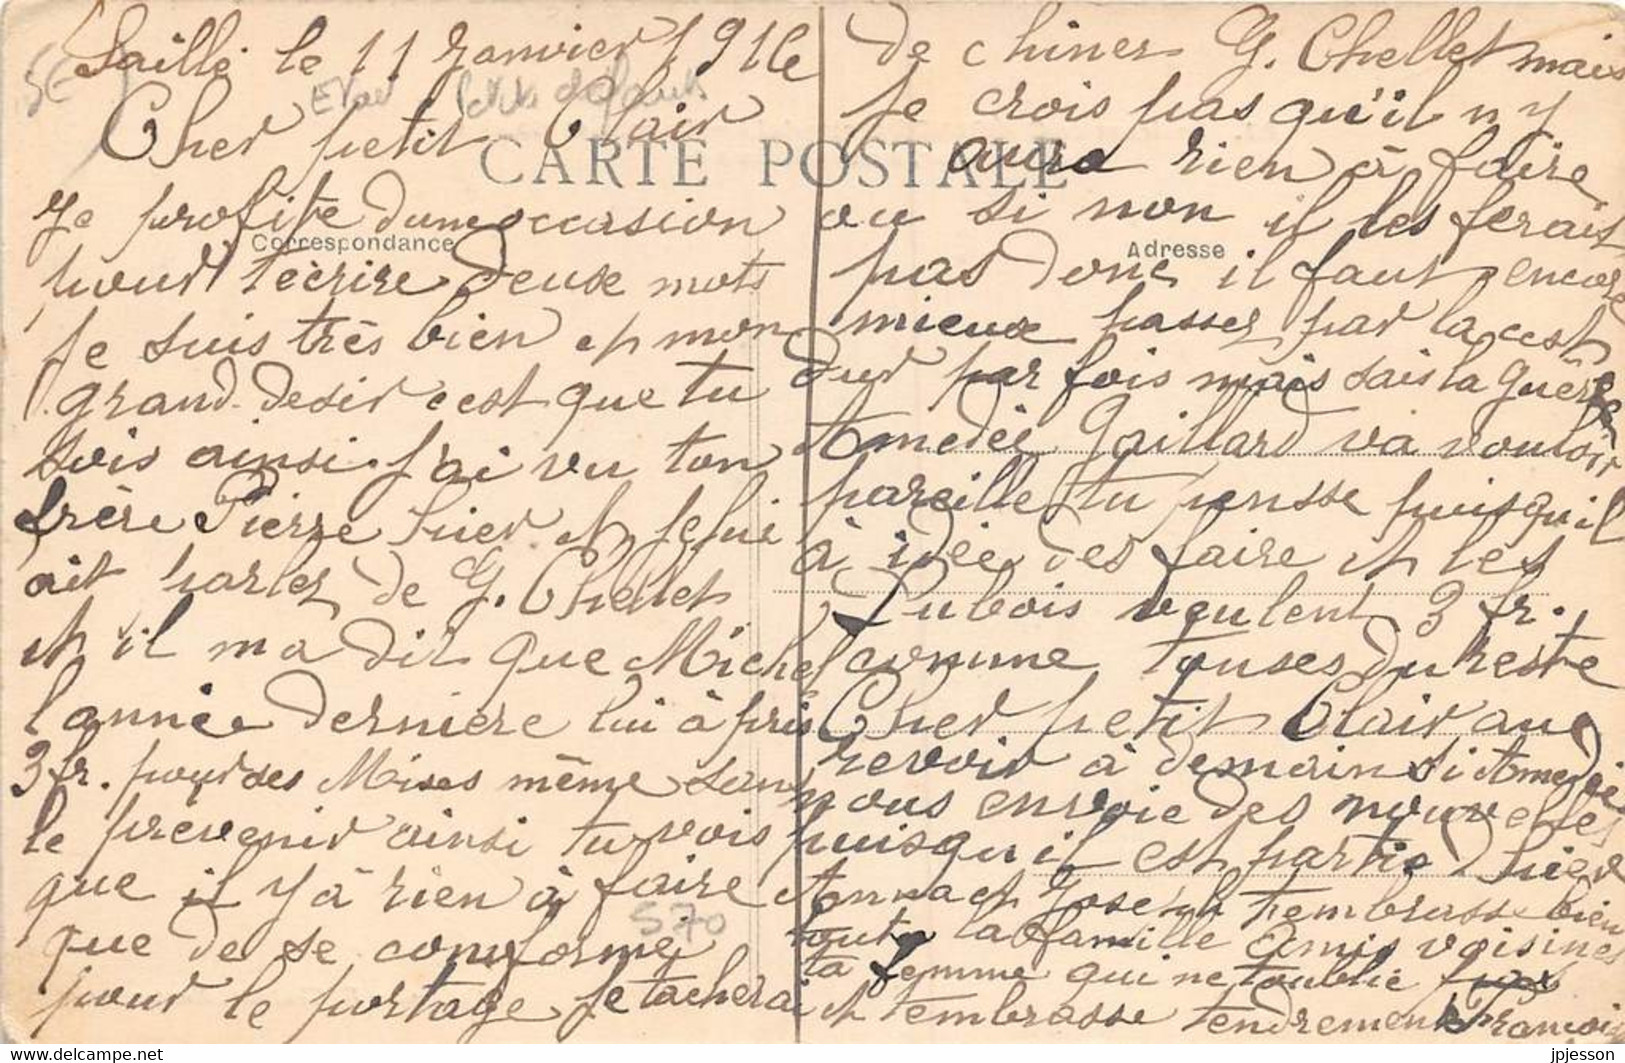 Saillé le 11 Janvier 1916
Cher petit Clair
CARTE POSTALE
Je profite dune occasion
Correspondance
pour técrire deuse mots
Je suis très bien et mon
grand desir cest que tu
sois ainsi. j'ai vu ton
frère Pierre hier et je lui
ait parlez de G. Chellet
et il ma dit que Michel
lannée dernière lui à pris
3 fr. pour ses Mises même sans
le prevenir ainsi tu vois
que il y à rien à faire
570
que de se conforme
pour le portage je tacherai
de chiner G. Chellet mais
je crois pas qu'il n y
aura rien à faire
ou si non il les ferait
Adresse
pas donc il faut encore
mieux passer par la cest
dur par fois mais sais la guère
Amedée Gaillard va vouloir
pareille tu pensse puisquil
à idée des faire et les
Dubois veulent 3 fr.
comme touses du reste
Cher petit Clair au
revoir à demain si Amedée
nous envoie des nouvelles
puisqu il est partie hier
Anna et Joseph tembrasse bien
toute la famille amis voisines
ta femme qui ne toublie pas
et tembrasse tendrement François
jpjesson